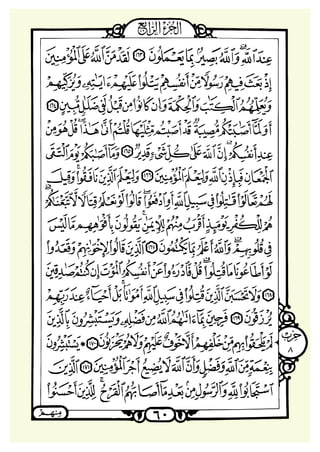 الجزء الرابع
عِندَ ٱللَّهِ وَٱللَّهُ بَصِيرٌۢ بِمَا يَعْمَلُونَ ١٦٣ لَقَدْ مَنَّ ٱللَّهُ عَلَى ٱلْمُؤْمِنِينَ
إِذْ بَعَثَ فِيهِمْ رَسُولًا مِّنْ أَنفُسِهِمْ يَتْلُوا۟ عَلَيْهِمْ ءَايَٰتِهِۦ وَيُزَكِّيهِمْ
وَيُعَلِّمُهُمُ ٱلْكِتَٰبَ وَٱلْحِكْمَةَ وَإِن كَانُوا۟ مِن قَبْلُ لَفِى ضَلَٰلٍ مُّبِينٍ ١٦٤
أَوَلَمَّآ أَصَٰبَتْكُم مُّصِيبَةٌ قَدْ أَصَبْتُم مِّثْلَيْهَا قُلْتُمْ أَنَّىٰ هَٰذَا قُلْ هُوَ مِنْ
عِندِ أَنفُسِكُمْ إِنَّ ٱللَّهَ عَلَىٰ كُلِّ شَىْءٍ قَدِيرٌ ١٦٥ وَمَآ أَصَٰبَكُمْ يَوْمَ ٱلْتَقَى
ٱلْجَمْعَانِ فَبِإِذْنِ ٱللَّهِ وَلِيَعْلَمَ ٱلْمُؤْمِنِينَ ١٦٦ وَلِيَعْلَمَ ٱلَّذِينَ نَافَقُوا۟ وَقِيلَ
لَهُمْ تَعَالَوْا۟ قَٰتِلُوا۟ فِى سَبِيلِ ٱللَّهِ أَوِ ٱدْفَعُوا۟ قَالُوا۟ لَوْ نَعْلَمُ قِتَالًا لَّٱتَّبَعْنَٰكُمْ
هُمْ لِلْكُفْرِ يَوْمَئِذٍ أَقْرَبُ مِنْهُمْ لِلْإِيمَٰنِ يَقُولُونَ بِأَفْوَٰهِهِم مَّا لَيْسَ
فِى قُلُوبِهِمْ وَٱللَّهُ أَعْلَمُ بِمَا يَكْتُمُونَ ١٦٧ ٱلَّذِينَ قَالُوا۟ لِإِخْوَٰنِهِمْ وَقَعَدُوا۟
لَوْ أَطَاعُونَا مَا قُتِلُوا۟ قُلْ فَٱدْرَءُوا۟ عَنْ أَنفُسِكُمُ ٱلْمَوْتَ إِن كُنتُمْ صَٰدِقِينَ
١٦٨ وَلَا تَحْسَبَنَّ ٱلَّذِينَ قُتِلُوا۟ فِى سَبِيلِ ٱللَّهِ أَمْوَٰتًۢا بَلْ أَحْيَآءٌ عِندَ رَبِّهِمْ
يُرْزَقُونَ ١٦٩ فَرِحِينَ بِمَآ ءَاتَىٰهُمُ ٱللَّهُ مِن فَضْلِهِۦ وَيَسْتَبْشِرُونَ بِٱلَّذِينَ
لَمْ يَلْحَقُوا۟ بِهِم مِّنْ خَلْفِهِمْ أَلَّا خَوْفٌ عَلَيْهِمْ وَلَا هُمْ يَحْزَنُونَ ١٧٠ يَسْتَبْشِرُونَ
بِنِعْمَةٍ مِّنَ ٱللَّهِ وَفَضْلٍ وَأَنَّ ٱللَّهَ لَا يُضِيعُ أَجْرَ ٱلْمُؤْمِنِينَ ١٧١ ٱلَّذِينَ
ٱسْتَجَابُوا۟ لِلَّهِ وَٱلرَّسُولِ مِنۢ بَعْدِ مَآ أَصَابَهُمُ ٱلْقَرْحُ لِلَّذِينَ أَحْسَنُوا۟
حزب
٨
٦٠
منهم